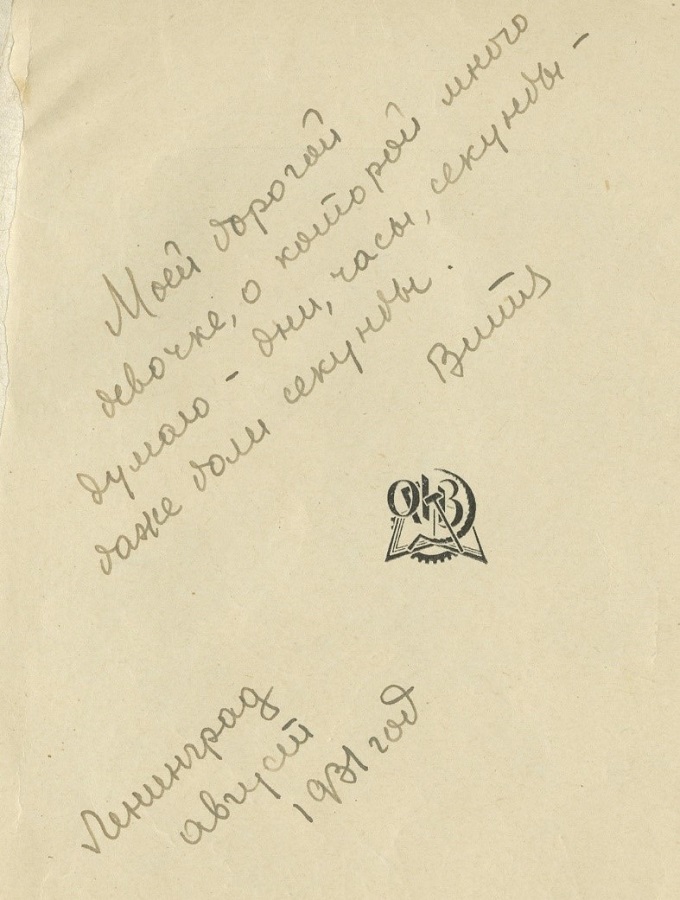 Моей дорогой
девочке, о которой много
думаю - дни, часы, секунды -
даже доли секунды.
ОГИЗ
Ленинград
август
1931 год